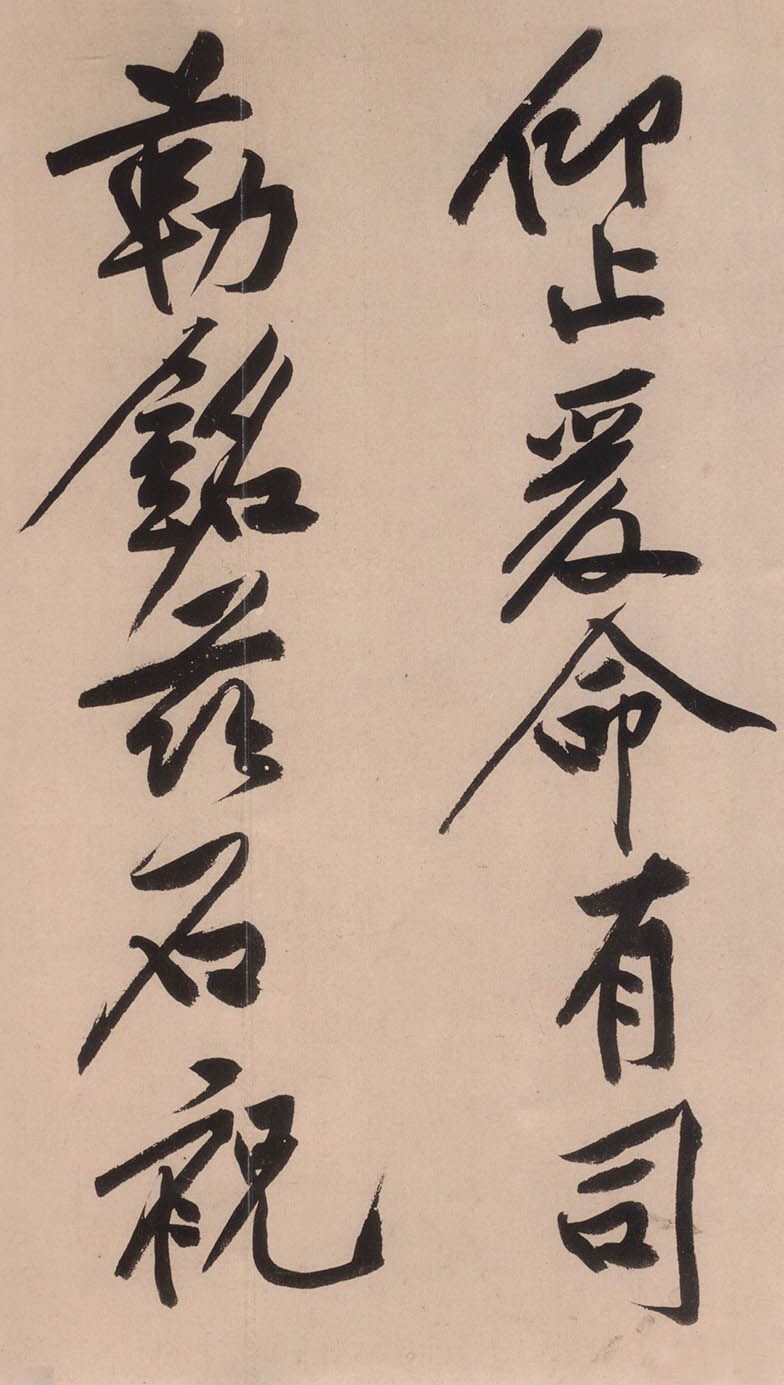 仰止爰命有司
勒銘茲石祝